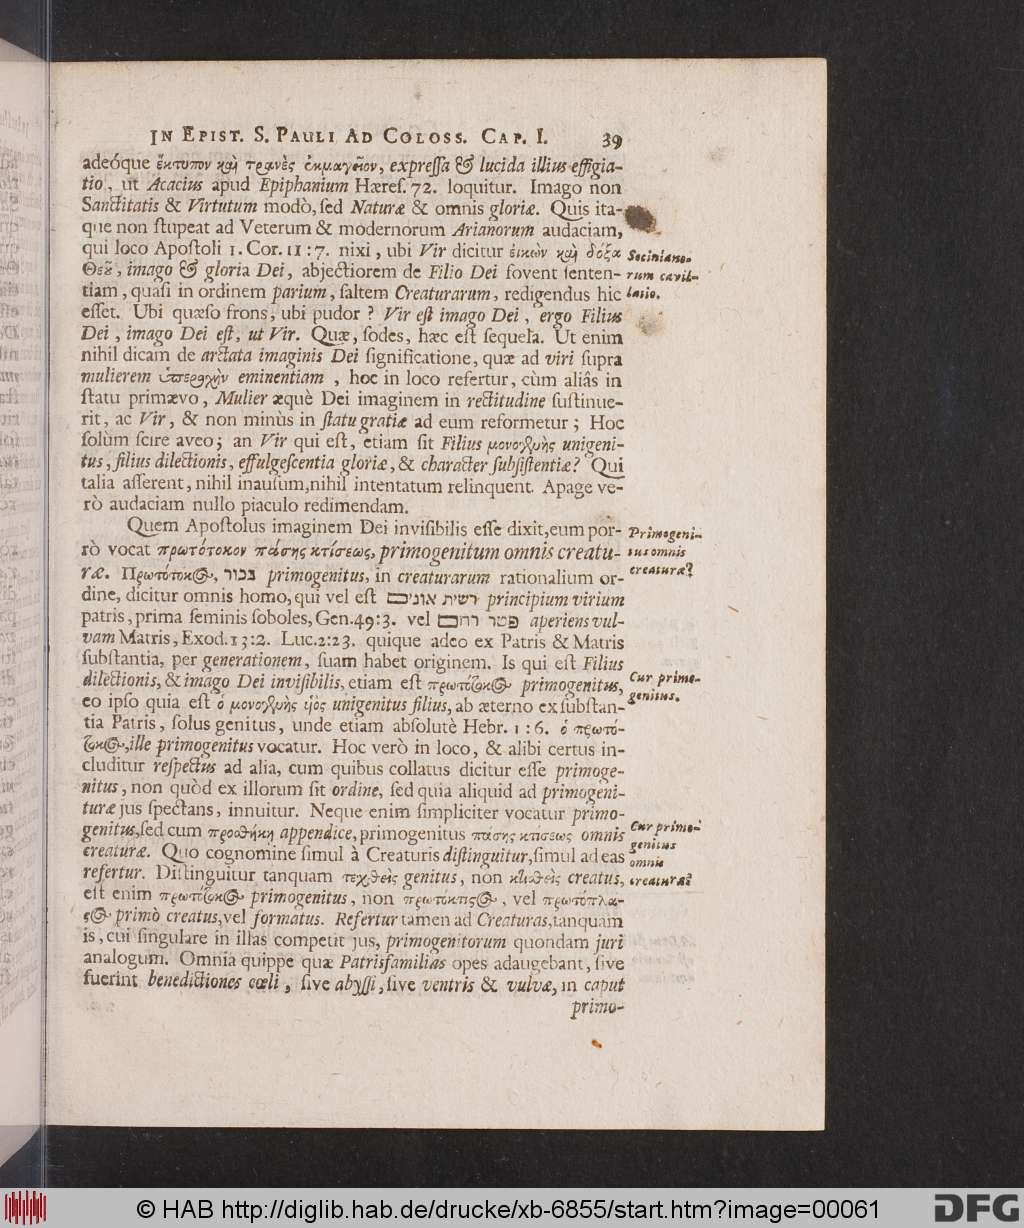 IN EPIST. S. PAULI AD COLOSS. CAP. I. 39
adeóque ἔκτυπον καὶ τρανὲς ἐκμαγεῖον, expreſſa & lucida illius effigia-
tio, ut Acacius apud Epiphanium Hæreſ. 72. loquitur. Imago non
Sanctitatis & Virtutum modò, ſed Naturæ & omnis gloriæ. Quis ita-
que non ſtupeat ad Veterum & modernorum Arianorum audaciam,
qui loco Apoſtoli 1. Cor. 11:7. nixi, ubi Vir dicitur ἐικὼν καὶ δόξα
Θεȣ͂, imago & gloria Dei, abjectiorem de Filio Dei fovent ſenten-
tiam, quaſi in ordinem parium, ſaltem Creaturarum, redigendus hic
eſſet. Ubi quæſo frons, ubi pudor? Vir eſt imago Dei, ergo Filius
Dei, imago Dei eſt, ut Vir. Quæ, ſodes, hæc eſt ſequela. Ut enim
nihil dicam de arctata imaginis Dei ſignificatione, quæ ad viri ſupra
mulierem ὑπεροχὴν eminentiam, hoc in loco refertur, cùm aliâs in
ſtatu primævo, Mulier æquè Dei imaginem in rectitudine ſuſtinue-
rit, ac Vir, & non minùs in ſtatu gratiæ ad eum reformetur; Hoc
ſolùm ſcire aveo; an Vir qui eſt, etiam ſit Filius μονογενὴς unigeni-
tus, filius dilectionis, effulgeſcentia gloriæ, & character ſubſiſtentiæ? Qui
talia aſſerent, nihil inauſum, nihil intentatum relinquent. Apage ve-
rò audaciam nullo piaculo redimendam.
Quem Apoſtolus imaginem Dei inviſibilis eſſe dixit, eum por-
rò vocat πρωτότοκον πάσης κτίσεως, primogenitum omnis creatu-
ræ. Πρωτότοκος, בכור primogenitus, in creaturarum rationalium or-
dine, dicitur omnis homo, qui vel eſt רשית אונים principium virium
patris, prima ſeminis ſoboles, Gen. 49:3. vel פטר רחם aperiens vul-
vam Matris, Exod. 13:2. Luc. 2:23. quique adeo ex Patris & Matris
ſubſtantia, per generationem, ſuam habet originem. Is qui eſt Filius
dilectionis, & imago Dei inviſibilis, etiam eſt πρωτότοκος primogenitus,
eo ipſo quia eſt ὁ μονογενὴς ὑιὸς unigenitus filius, ab æterno ex ſubſtan-
tia Patris, ſolus genitus, unde etiam abſolutè Hebr. 1:6. ὁ πρωτό-
τοκος, ille primogenitus vocatur. Hoc verò in loco, & alibi certus in-
cluditur reſpectus ad alia, cum quibus collatus dicitur eſſe primoge-
nitus, non quòd ex illorum ſit ordine, ſed quia aliquid ad primogeni-
turæ jus ſpectans, innuitur. Neque enim ſimpliciter vocatur primo-
genitus, ſed cum προσθήκη appendice, primogenitus πάσης κτίσεως omnis
creaturæ. Quo cognomine ſimul à Creaturis diſtinguitur, ſimul ad eas
refertur. Diſtinguitur tanquam τεχθεὶς genitus, non κτισθεὶς creatus,
eſt enim πρωτότοκος primogenitus, non πρωτόκτιςος, vel πρωτόπλα-
ςος primò creatus, vel formatus. Refertur tamen ad Creaturas, tanquam
is, cui ſingulare in illas competit jus, primogenitorum quondam juri
analogum. Omnia quippe quæ Patrisfamilias opes adaugebant, ſive
fuerint benedictiones cœli, ſive abyſſi, ſive ventris & vulvæ, in caput
primo-
Sociniano-
rum cavil-
latio.
Primogeni-
tus omnis
creaturæ?
Cur primo-
genitus.
Cur primo-
genitus
omnis
creaturæ?
© HAB http://diglib.hab.de/drucke/xb-6855/start.htm?image=00061
DFG